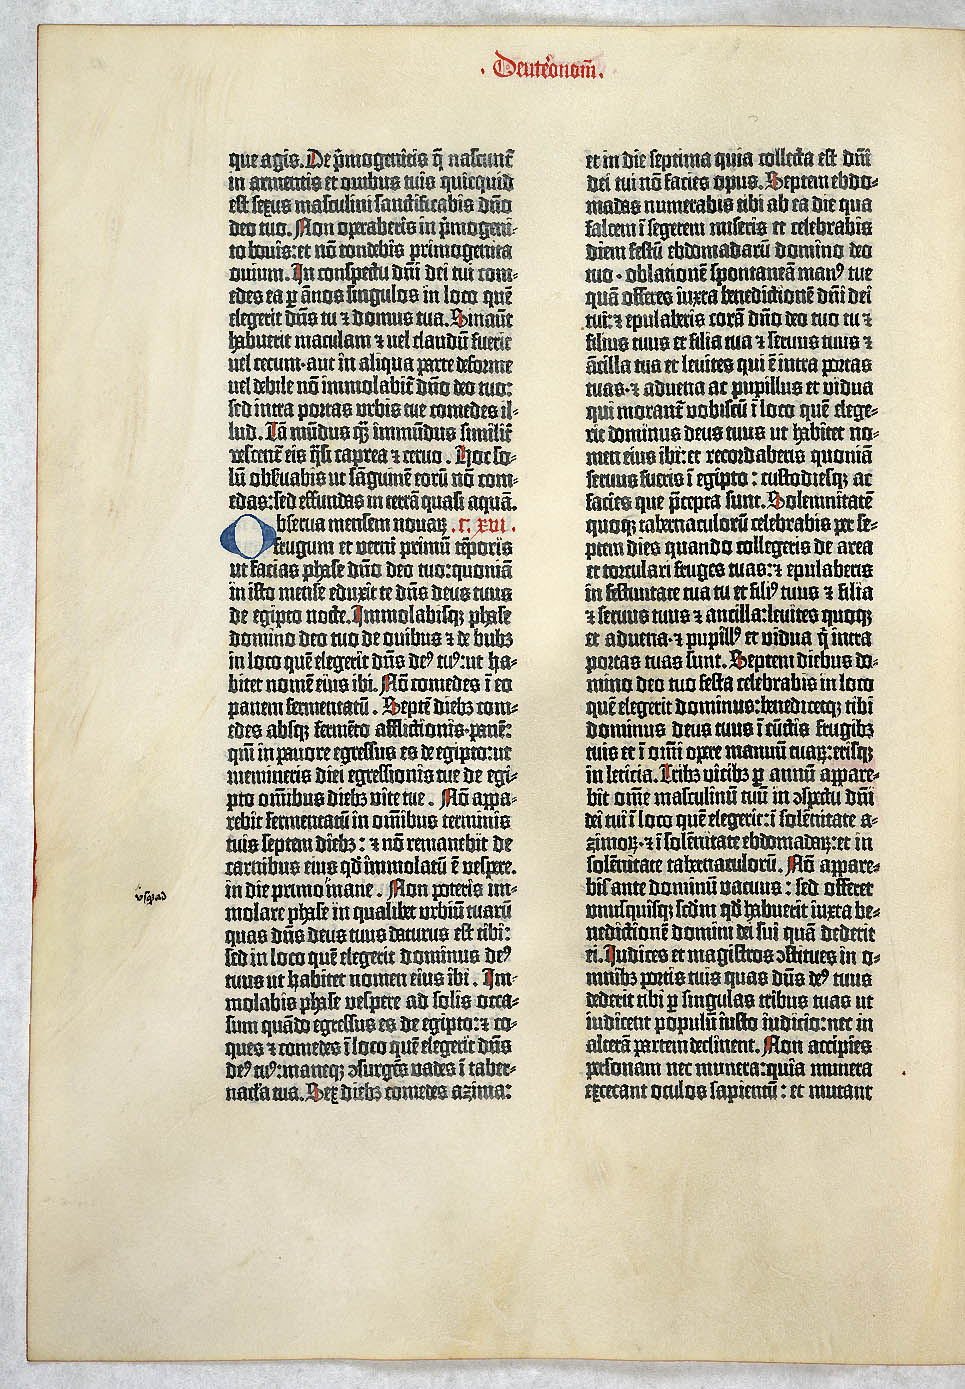 . Deuterōnom̄.
que agis. De p̄mogenitis q̄ nascunt̄
in armentis et ovibus tuis quicquid
est sexus masculini sanctificabis dn̄o
deo tuo. Non operaberis in p̄mogeni-
to bovis: et nō tondebis primogenita
ovium. In conspectu dn̄i dei tui com-
edes ea p ānos singulos in loco quē
elegerit dn̄s tu ⁊ domus tua. Sinaut̄
habuerit maculam ⁊ vel claudū fuerit
vel cecum· aut in aliqua parte deforme
vel debile nō immolabit̄ dn̄o deo tuo:
sed intra portas urbis tue comedes il-
lud. Tā mūdus qꝫ immūdus similit̄
vescent̄ eis q̄si caprea ⁊ cervo. Hoc so-
lū observabis ut sāguinē eorū nō com-
edas: sed effundas in terrā quasi aquā.
Observa mensem novaꝝ . c. xvi .
frugum et verni primū tēporis
ut facias phase dn̄o deo tuo: quoniā
in isto mense eduxit te dn̄s deus tuus
de egipto nocte. Immolabisqꝫ phase
domino deo tuo de ovibus ⁊ de bubꝫ
in loco quē elegerit dn̄s deꝰ tuꝰ: ut ha-
bitet nomē eius ibi. Nō comedes ī eo
panem fermentatū. Septē diebꝫ com-
edes absqꝫ fermēto afflictionis· panē:
qm̄ in pavore egressus es de egipto: ut
memineris diei egressionis tue de egi-
pto omībus diebꝫ vite tue. Nō appa-
rebit fermentatū in omībus terminis
tuis septem diebꝫ: ⁊ nō remanebit de
carnibus eius qd̄ immolatū ē vespere.
in die primo mane. Non poteris im-
vsq̨ad
molare phase in qualibet urbiū tuarū
quas dn̄s deus tuus daturus est tibi:
sed in loco quē elegerit dominus deꝰ
tuus ut habitet nomen eius ibi. Im-
molabis phase vespere ad solis occa-
sum quādo egressus es de egipto: ⁊ co-
ques ⁊ comedes ī loco quē elegerit dn̄s
deꝰ tuꝰ: maneqꝫ ↄsurgēs vades ī taber-
nacla tua. Sex diebꝫ comedes azima:
et in die septima quia collecta est dn̄i
dei tui nō facies opus. Septem ebdo-
madas numerabis tibi ab ea die qua
falcem ī segetem miseris et celebrabis
diem festū ebdomadarū domino deo
tuo · oblationē spontaneā manꝰ tue
quā offeres iuxta benedictionē dn̄i dei
tui: ⁊ epulaberis corā dn̄o deo tuo tu ⁊
filius tuus et filia tua ⁊ servus tuus ⁊
ācilla tua et levites qui ē intra portas
tuas· ⁊ advena ac pupillus et vidua
qui morant̄ vobiscū ī loco quē elege-
rit dominus deus tuus ut habitet no-
men eius ibi: et recordaberis quoniā
servus fueris ī egipto: custodiesqꝫ ac
facies que p̄cepta sunt. Solemnitatē
quoqꝫ tabernaculorū celebrabis per se-
ptem dies quando collegeris de area
et torculari fruges tuas: ⁊ epulaberis
in festivitate tua tu et filiꝰ tuus ⁊ filia
⁊ servus tuus ⁊ ancilla: levites quoqꝫ
et advena· ⁊ pupillꝰ et vidua q̄ intra
portas tuas sunt. Septem diebus do-
mino deo tuo festa celebrabis in loco
quē elegerit dominus: benedicetqꝫ tibi
dominus deus tuus ī cūctis frugibꝫ
tuis et ī omī opere manuū tuaꝝ: erisqꝫ
in leticia. Tribꝫ vicibꝫ p annū appare-
bit ome masculinū tuū in ↄspectu dn̄i
dei tui ī loco quē elegerit: ī solēnitate a-
zimoꝝ· ⁊ ī solēnitate ebdomadaꝝ: et in
solēnitate tabernaculorū. Nō appare-
bit ante dominū vacuus: sed offeret
unusquisqꝫ secd̄m qd̄ habuerit iuxta be-
nedictionē domini dei sui quā dederit
ei. Iudices et magistros ↄstitues in o-
mnibꝫ portis tuis quas dn̄s deꝰ tuus
dederit tibi p singulas tribus tuas ut
iudicent populū iusto iudicio: nec in
alterā partem declinent. Non accipies
personam nec munera: quia munera
excecant oculos sapientū: et mutant